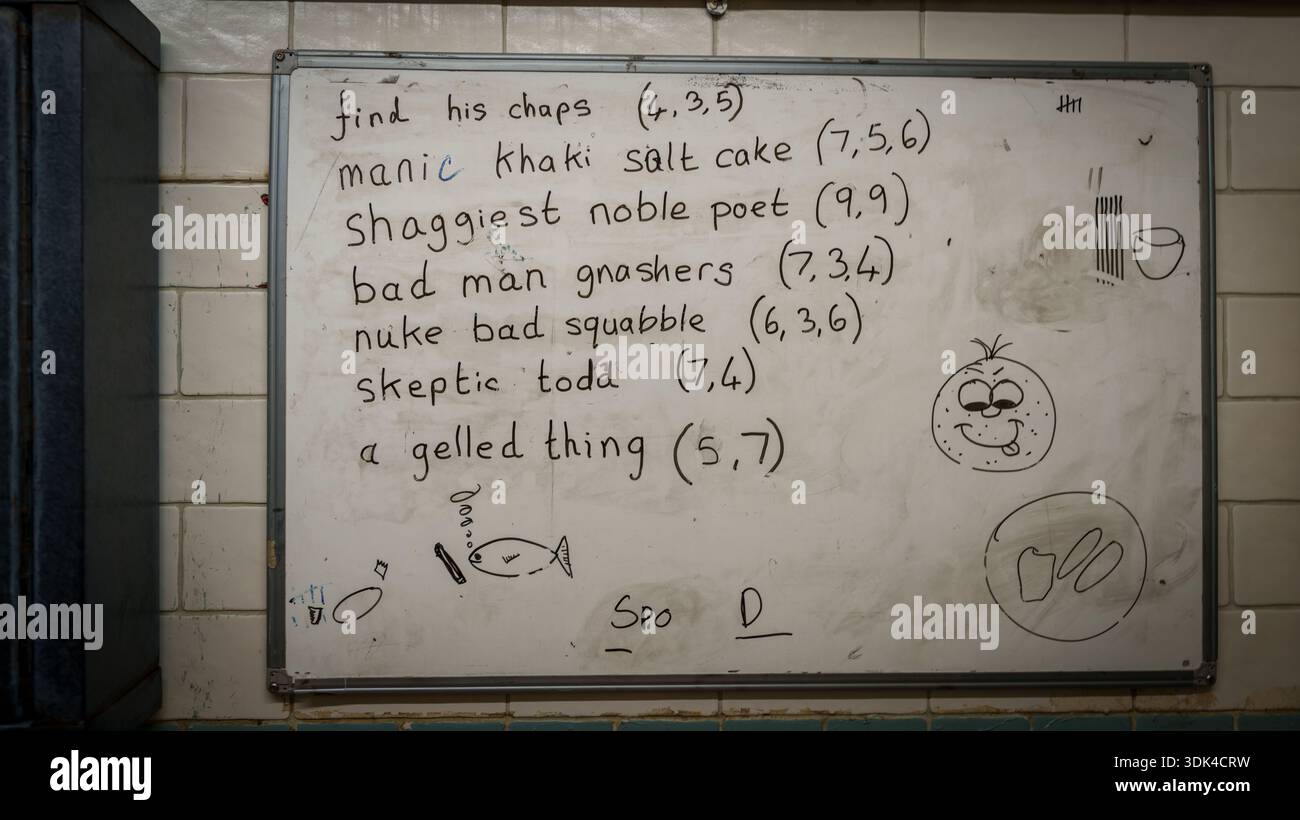 find his chaps (4,3,5)
manic khaki salt cake (7,5,6)
shaggiest noble poet (9,9)
bad man gnashers (7,3,4)
nuke bad squabble (6,3,6)
skeptic toda (7,4)
a gelled thing (5,7)
Spo D
alamy
Image ID: 3DK4CRW
www.alamy.com